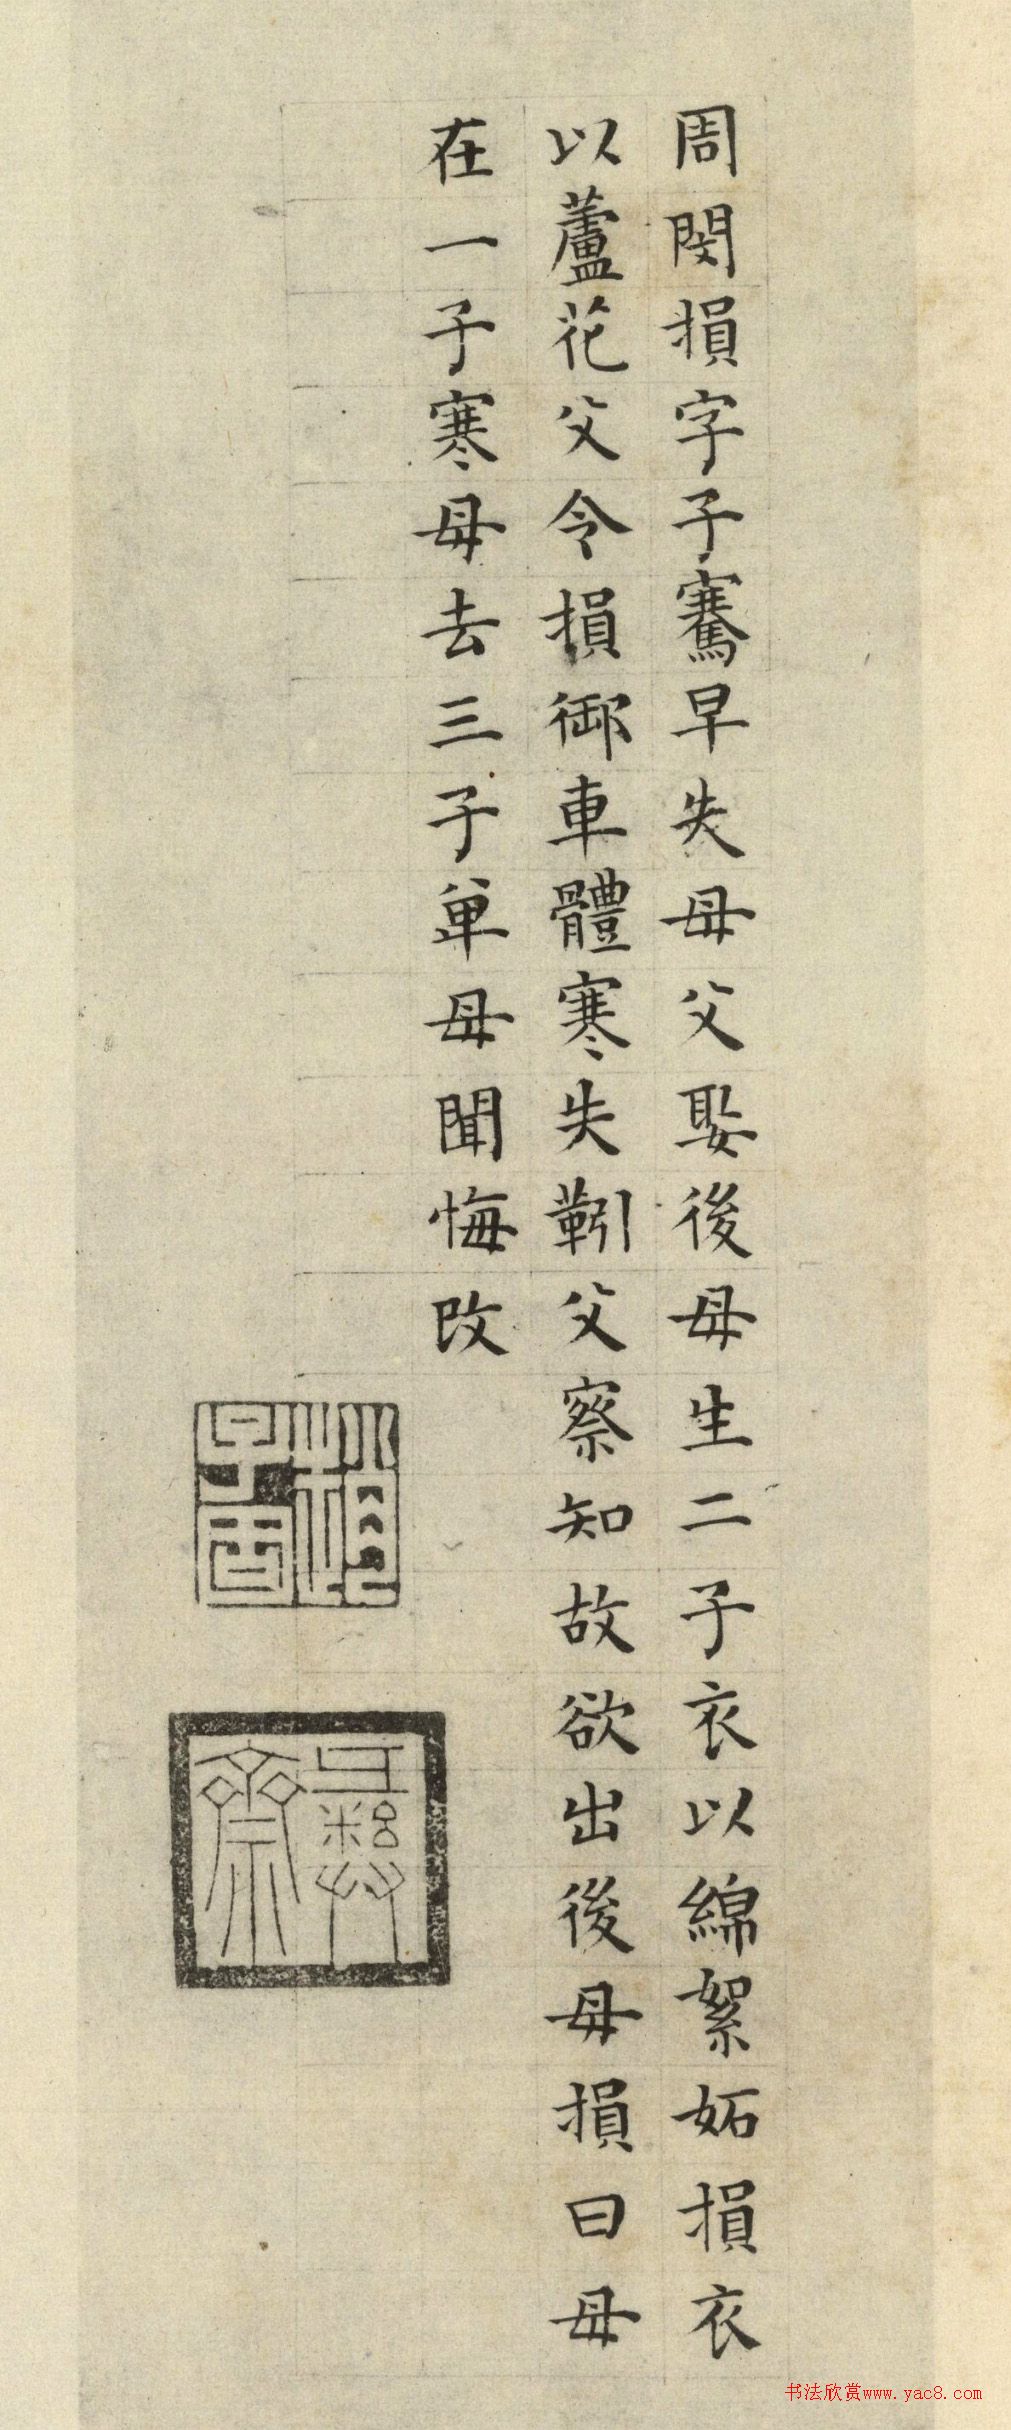 周閔損字子騫早失母父娶後母生二子衣以綿絮妬損衣
以蘆花父令損御車體寒失靷父察知故欲出後母損曰母
在一子寒母去三子單母聞悔改
书法欣赏www.yac8.com